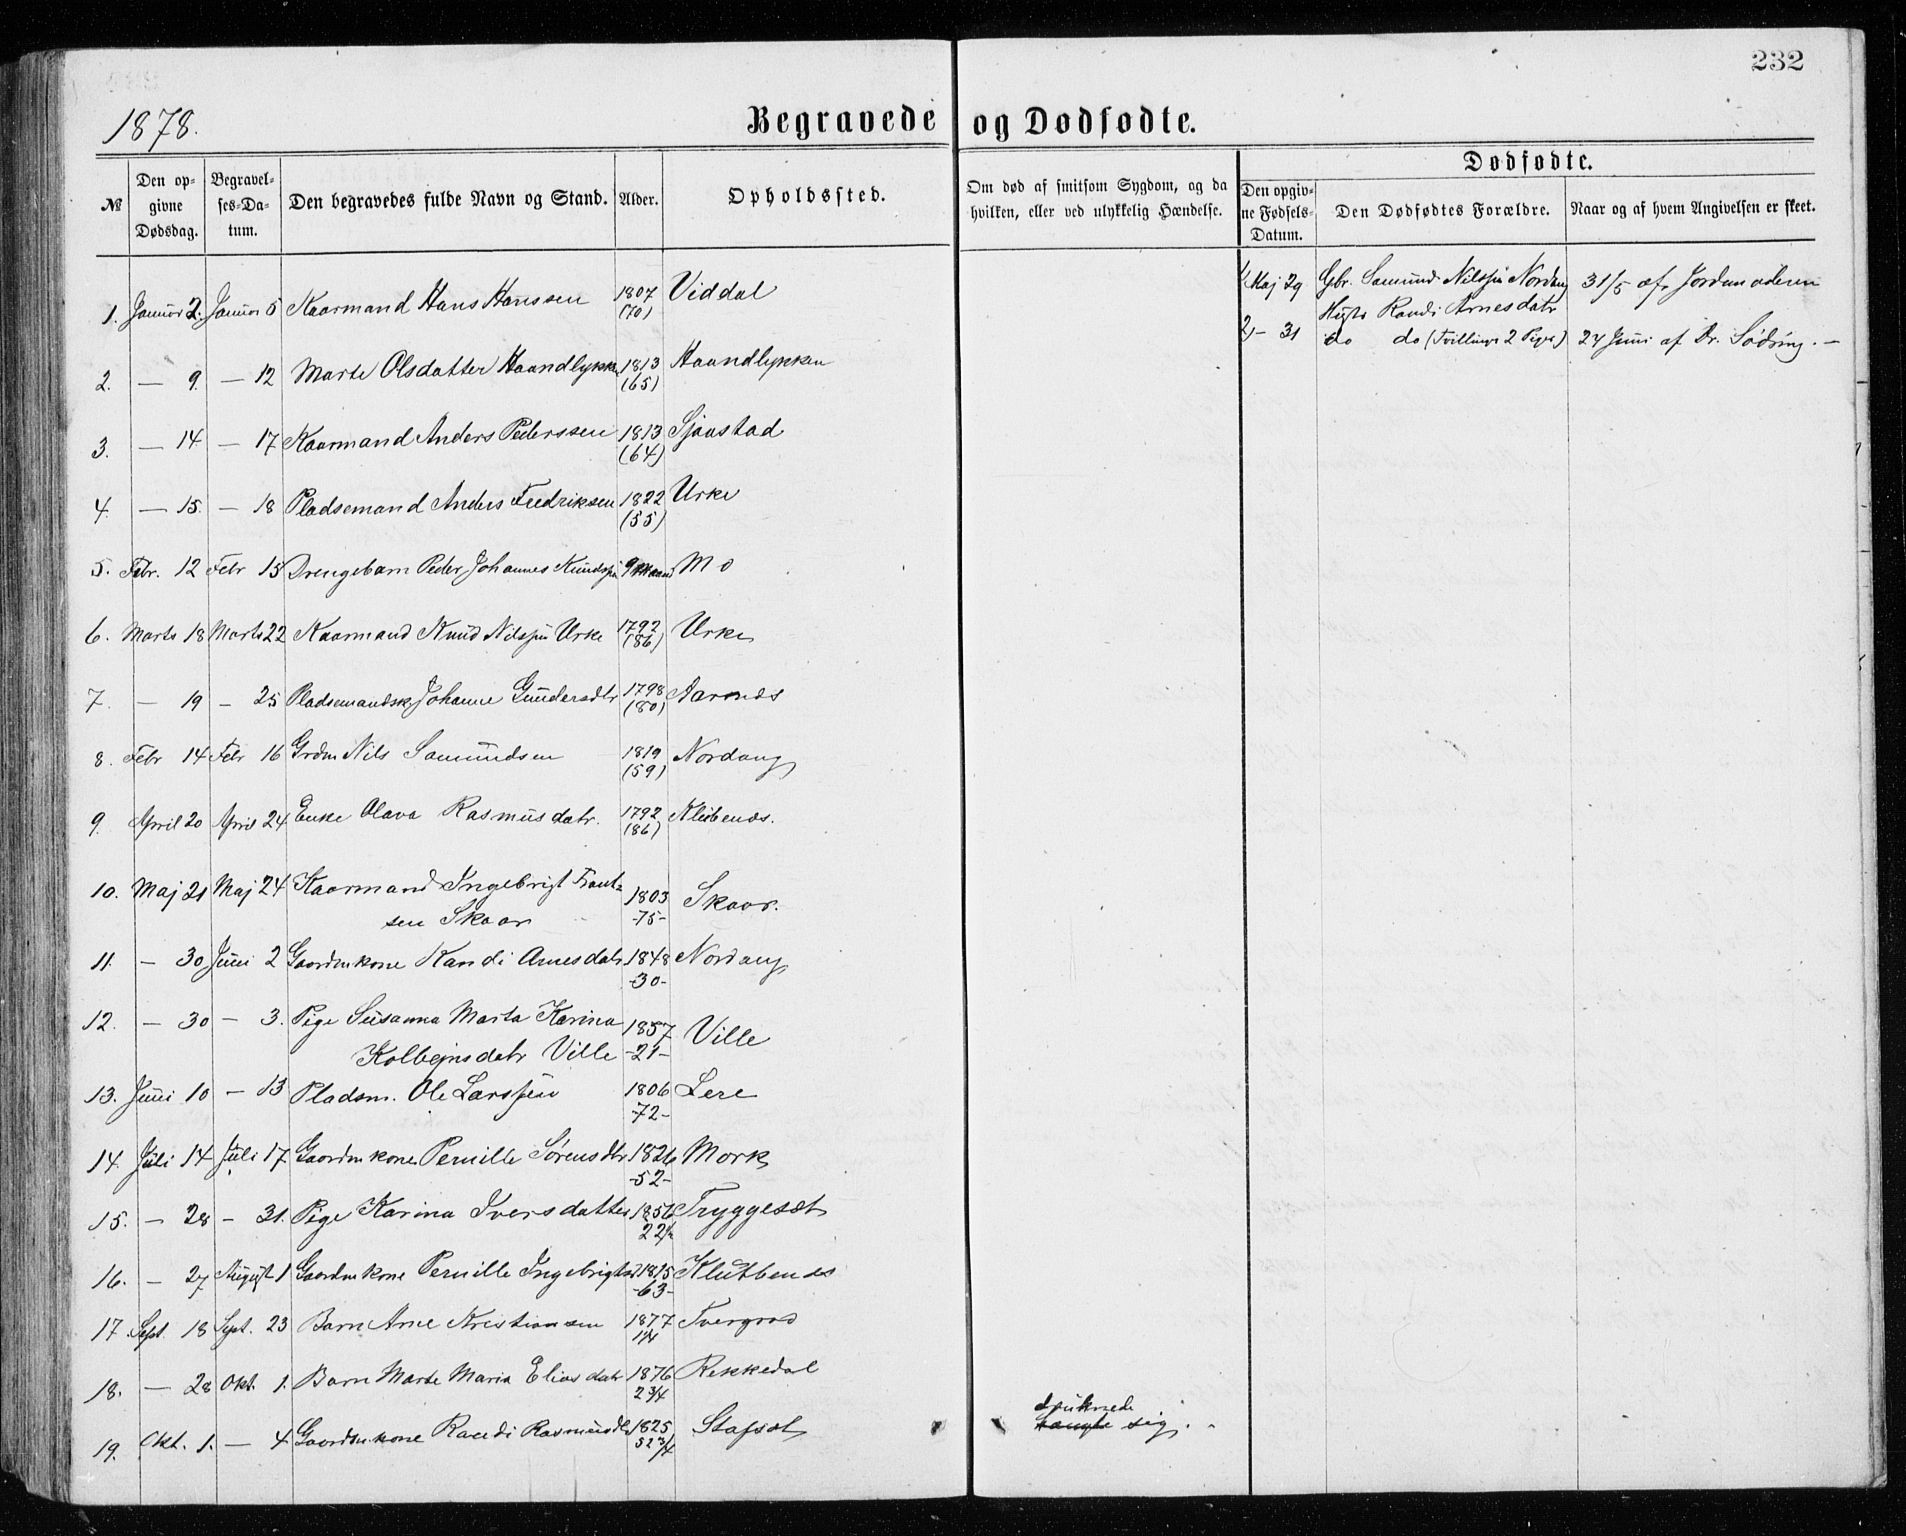 232
1878.
Begravede og Dødfødte.
Dødfødte.
№
Den opgivne Dødsdag.
Begravelses-Datum.
Den begravedes fulde Navn og Stand.
Alder.
Opholdssted.
Om død af smitsom Sygdom, og da hvilken, eller ved ulykkelig Hændelse.
Den opgivne Fødsels-Datum.
Den Dødfødtes Forældre.
Naar og af hvem Angivelsen er skeet.
1. Januar 2. Januar 5 Kaarmand Hans Hanssen 1807 (70) Viddal
2. — 9. — 12 Marte Olsdatter Haandlykke 1813 (65) Haandlykken
3. — 14 — 17 Kaarmand Anders Pederssen 1813 (64) Sjaastad
4. — 15. — 18 Pladsemand Anders Fredriksen 1822 (55) Urke
5. Febr. 12 Febr 15 Drengebarn Peder Johannes Knudssen 9 Maan Mo
6. Marts 18 Marts 22 Kaarmand Knud Nilssen Urke 1792 (86) Urke
7. — 19 — 25 Pladsemandsk Johanne Gundersdtr 1798 (80) Aarnæs
8. Febr 14 Febr 16 Grdm Nils Samundsen 1819 (59) Nordang
9. April 20 April 24 Enke Olava Rasmusdatr. 1792 (86)
10. Maj 21 Maj 24 Kaarmand Ingebrigt Frant=
sen Skaar 1803 -75- Skaar.
11. — 30 Juni 2 Gaardmkone Randi Arnesdatr 1848 -30- Nordang
12. — 30 — 3. Pige Susanna Marta Karina
Kolbejnsdatr Ville 1857 -21- Ville
13. Juni 10 — 13 Pladsm. Ole Larssen 1806 -72- Lere
14. Juli 14 Juli 17 Gaardmkone Pernille Sørensdtr 1826 -52- Mork
15. — 28 — 31. Pige Karina Iversdatter 1856 22½ Tryggesæt
16. — 27 August 1 Gaardmkone Pernille Ingebrigtsd 1815 -63- Klubbenæs
17. Sept. 18 Sept. 23 Barn Arne Kristiansen 1877 1¼
18. — 28 Okt. 1. Barn Marte Maria Eliasdatr 1876 2¾ Rekkedal
19. Okt. 1. — 4 Gaardmkone Randi Rasmusdtr 1825 52¾ Stafsæt
druknede
hængte sig.
1, Maj 29 Gbr. Samund Nilssen Nordang
Hustr Randi Arnesdatr 31/5 af Jordmoderen
2, — 31 do do (Tvillinge 2 Piger) 24 Juni af Dr. Sødring. —